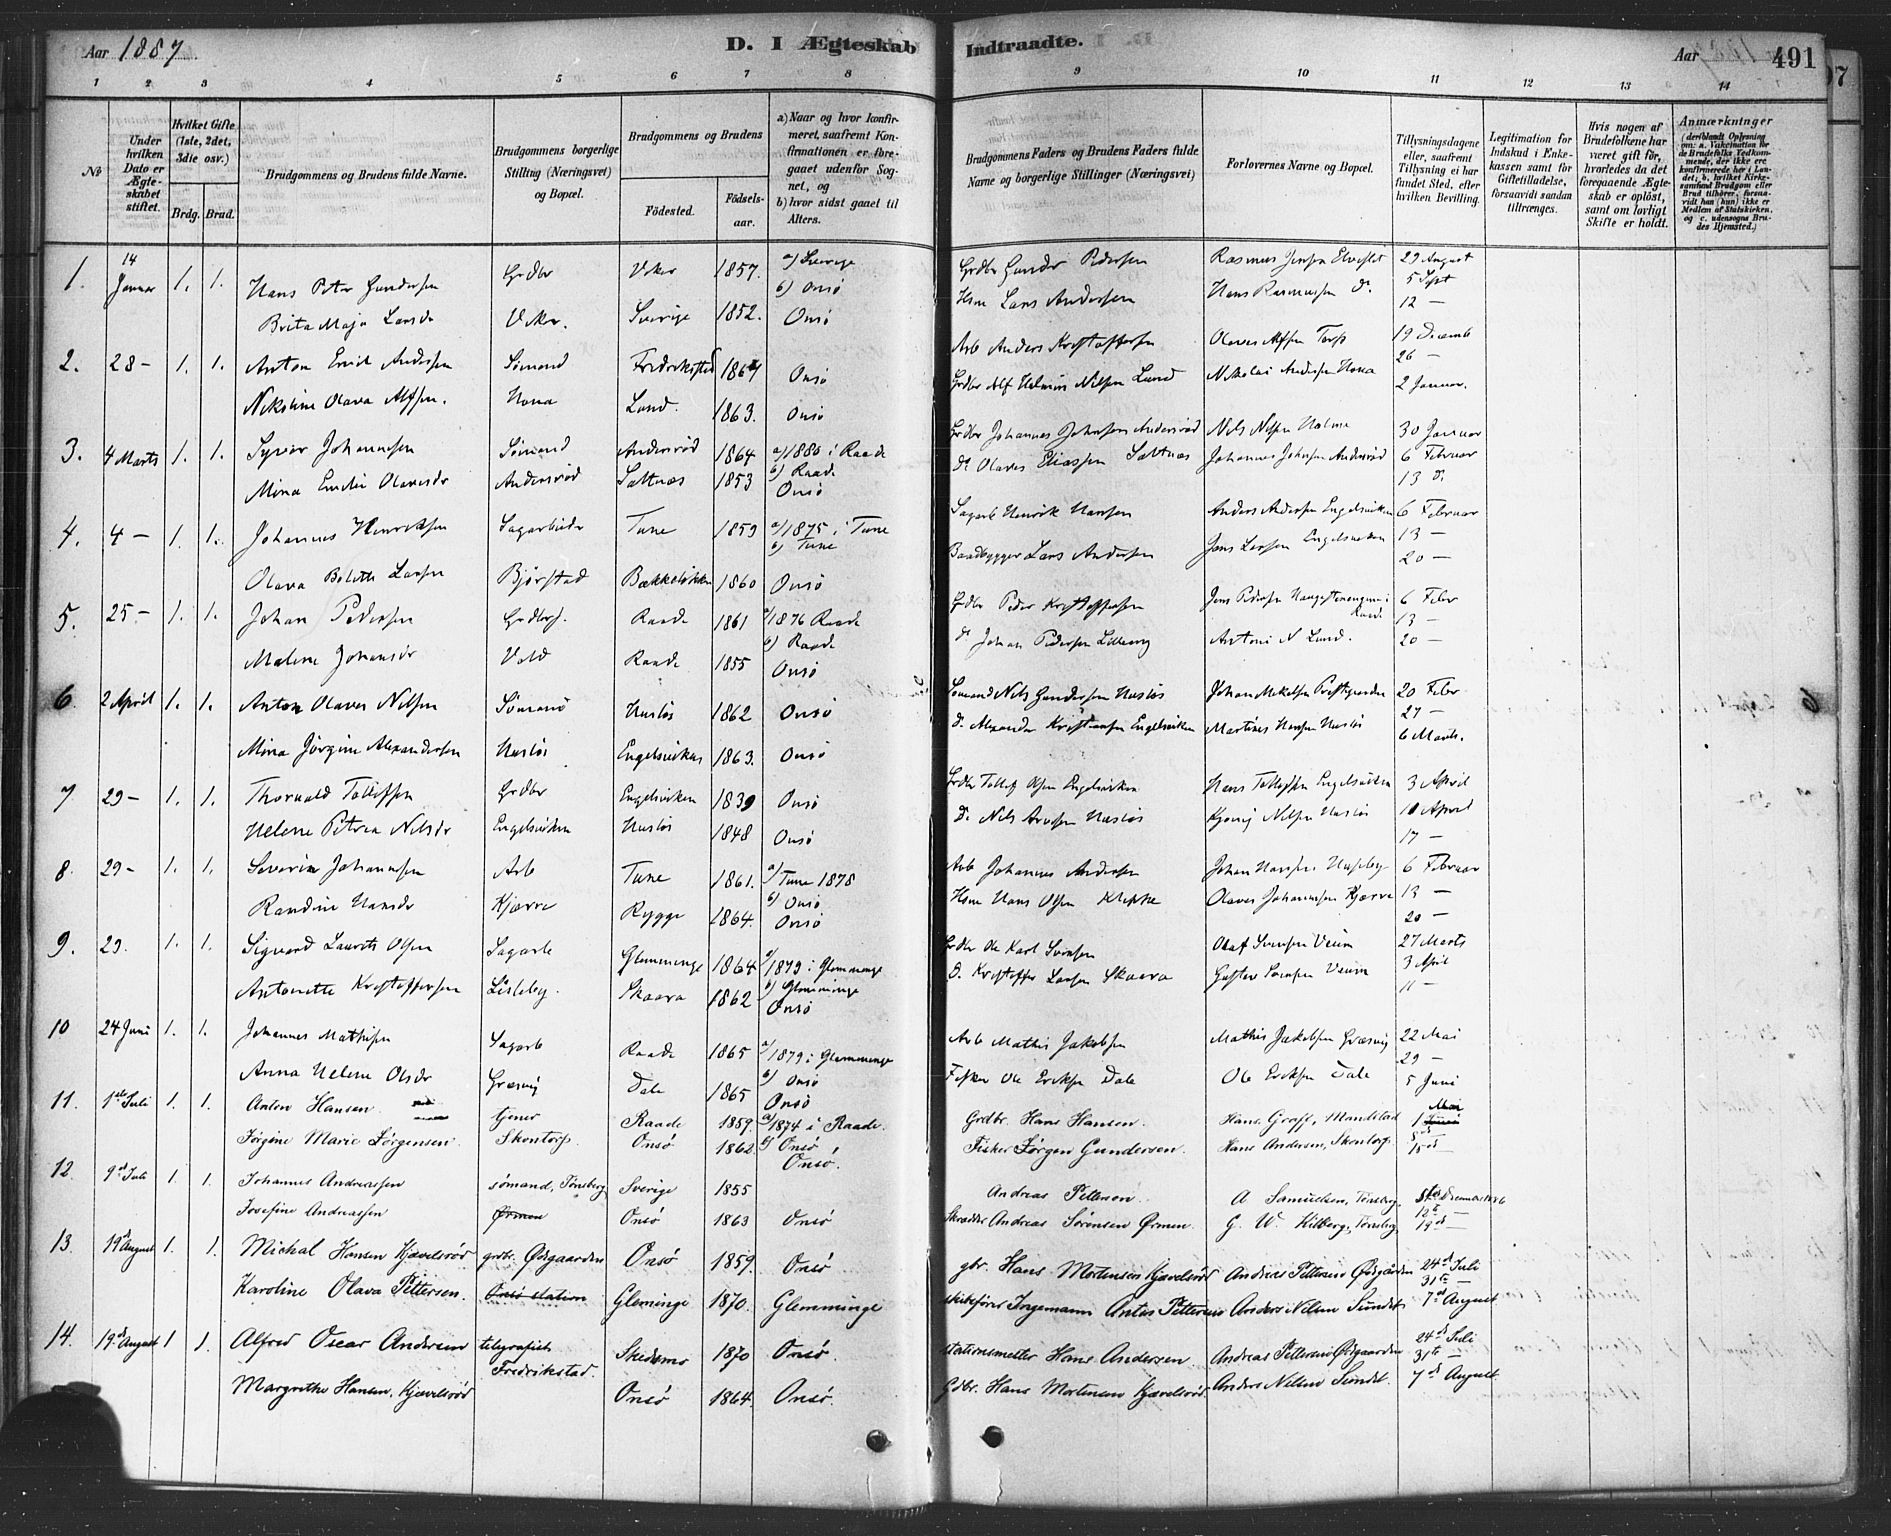 Aar 1887. D. I Ægteskab Indtraadte. Aar 491
1 2 3 4 5 6 7 8 9 10 11 12 13 14
No
Under hvilken Dato er Ægteskabet stiftet.
Hvilket Gifte (1ste, 2det, 3die osv.)
Brdg. Brud.
Brudgommens og Brudens fulde Navne.
Brudgommens borgerlige Stilling (Næringsvei) og Bopæl.
Brudgommens og Brudens
Födested. Födselsaar.
a) Naar og hvor konfirmeret, saafremt Konfirmationen er foregaaet udenfor Sognet, og
b) hvor sidst gaaet til Alters.
Brudgommens Faders og Brudens Faders fulde Navne og borgerlige Stillinger (Næringsvei)
Forlovernes Navne og Bopæl.
Tillysningsdagene eller, saafremt Tillysning ei har fundet Sted, efter hvilken Bevilling.
Legitimation for Indskud i Enkekassen samt for Giftetilladelse, forsaavidt saadan tiltrænges.
Hvis nogen af Brudefolkene har været gift för, hvorledes da det foregaaende Ægteskab er oplöst, samt om lovligt Skifte er holdt.
Anmærkninger
1. 14 Januar 1. 1. Hans Peter Gundersen Grdbr Viker 1857. a) Sverige b) Onsö Grdbr Gunder Pedersen Rasmus Jensen 29 August
5 Sept
Brita Maja Larsdr Viker. Sverige 1852. Onsö Hsm Lars Andersen Hans Rasmussen do. 12 —
2. 28 — 1. 1. Anton Emil Andersen Sömand Fredrikstad 1864 Onsö Arb Anders Kristoffersen Olaves Alfsen Torp 19 Decemb
26 —
Nikoline Olava Alfsen. Huna Lund. 1863. Onsö Grdbr Alf Helmer Nilsen Lund Nikolai Andersen Huna 2 Januar.
3. 4 Marts 1. 1. Syver Johannesen Sömand Andersröd 1864 a) 1880 i Raade b) Raade Grdbr Johannes Johnsen Andersröd Nils Nilsen Halme 30 Januar
6 Februar
Mina Emilie Olavesdr Andersröd Saltnæs 1853 Onsö do Olaves Eliassen Saltnæs Johannes Johnsen Andersröd 13 d.
4. 4 — 1. 1. Johannes Henriksen Sagarbeider Tune 1859 a) 1875 i Tune b) Tune Sagarb Henrik Hansen Anders Andersen Engelsviken 6 Februar
13 —
Olava Bolette Larsen Björstad Bækkelökken 1860 Onsö Baadbygger Lars Andersen Jens Larsen Engelsviken 20 —
5. 25 — 1. 1. Johan Pedersen Grdbrs. Raade 1861 a) 1876 Raade b) Raade Grdbr Peder Kristoffersen Jens Pedersen Haugstenengen i Raade 6 Febr
13 —
Malene Johansdr Vold Raade 1855 Onsö do Johan Pedersen Lilleeng Antoni N Lund. 20 —
6 2 April 1. 1. Anton Olaves Nilsen Sömand Huslös 1862 Onsö Sömand Nils Gundersen Huslös Johan Mikelsen Prestegaarden 20 Febr
27 —
Mina Jörgine Alexandersen Huslös Engelsviken 1863. Onsö do. Alexander Kristiansen Engelsviken Martines Hansen Huslös 6 Marts.
7 29 — 1. 1. Thorvald Tollefsen Grdbr Engelsviken 1839 Onsö Grdbr Tollef Olsen Engelsviken Hans Tollefsen Engelsviken 3 April
10 April
Helene Petrea Nilsdr Engelsviken Huslös 1848 Onsö Do Nils Arnesen Huslös Nilsen Huslös 17 —
8. 29 — 1. 1. Severin Johannesen Arb Tune 1861. a) Tune 1878 b) Onsö Arb Johannes Andersen Johan Hansen Huseby 6 Februar
13 —
Randine Hansdr Kjærre Rygge 1864. Onsö Hsm Hans Olsen Klippe Olaves Johannesen Kjærre 20 —
9. 29. 1. 1. Sigvard Laurits Olsen Sagarb Glemminge 1864 a) 1879 i Glemminge b) Glemminge Grdbr Ole Karl Svensen Olaf Svensen Veum 27 Marts
3 April
Antonette Kristoffersen Lisleby. Skaara 1862 Onsö d. Kristoffer Larsen Skaara Gustav Svensen Veum 11 —
10 24 Juni 1. 1. Johannes Mathisen Sagarb Raade 1865 a) 1879 i Glemminge b) Onsö Arb Mathis Jakobsen Mathis Jakobsen Græsvig 22 Mai
29 —
Anna Helene Olsdr Græsvig Dale 1865 Onsö Fisker Ole Eriksen Dale Ole Eriksen Dale 5 Juni
11. 1ste Juli 1. 1. Anton Hansen tjener Raade 1859. a) 1874 i Raade. b) Onsö Grdbr. Hans Hansen. Hans Graff, Mandstad 1 Mai
8de —
Jörgine Marie Jörgensen. Skontorp. Onsö 1862. Onsö. Fisker Jörgen Gundersen. Hans Andersen, Skontorp. 15de
12. 9de Juli 1. 1. Johannes Andreassen sömand, Tönsberg Sverige 1855 Andreas Pettersen. A Samuelsen, Tönsberg. 5te December 1886
12te —
Josefine Andreassen Ørmen Onsö 1863 Onsö Skrædder Andreas Sörensen Ørmen. G. W. Kilberg, Tönsberg. 19de —
13. 19de August 1. 1. Michal Hansen Kjævelsröd grdbr. Ødegaarden Onsö 1859. Onsö gbr. Hans Mortensen Kjævelsröd Andreas Pettersen Ødegården 24de Juli
31te —
Karoline Olava Pettersen. Onsö station Gleminge 1870. Glemminge skibsförer Ingemann Antus Pettersen Anders Nilsen Sundet. 7de August
14. 19de August 1 1. Alfred Oscar Andersen telegrafist Fredrikstad. Skedsmo 1870 Onsö. stationsmester Hans Andersen. Andreas Pettersen Ødegaarden 24de Juli
31te —
Margrethe Hansen, Kjævelsröd Onsö 1864. Onsö. Gdbr. Hans Mortensen Kjævelsröd. Anders Nilsen Sundet. 7de August